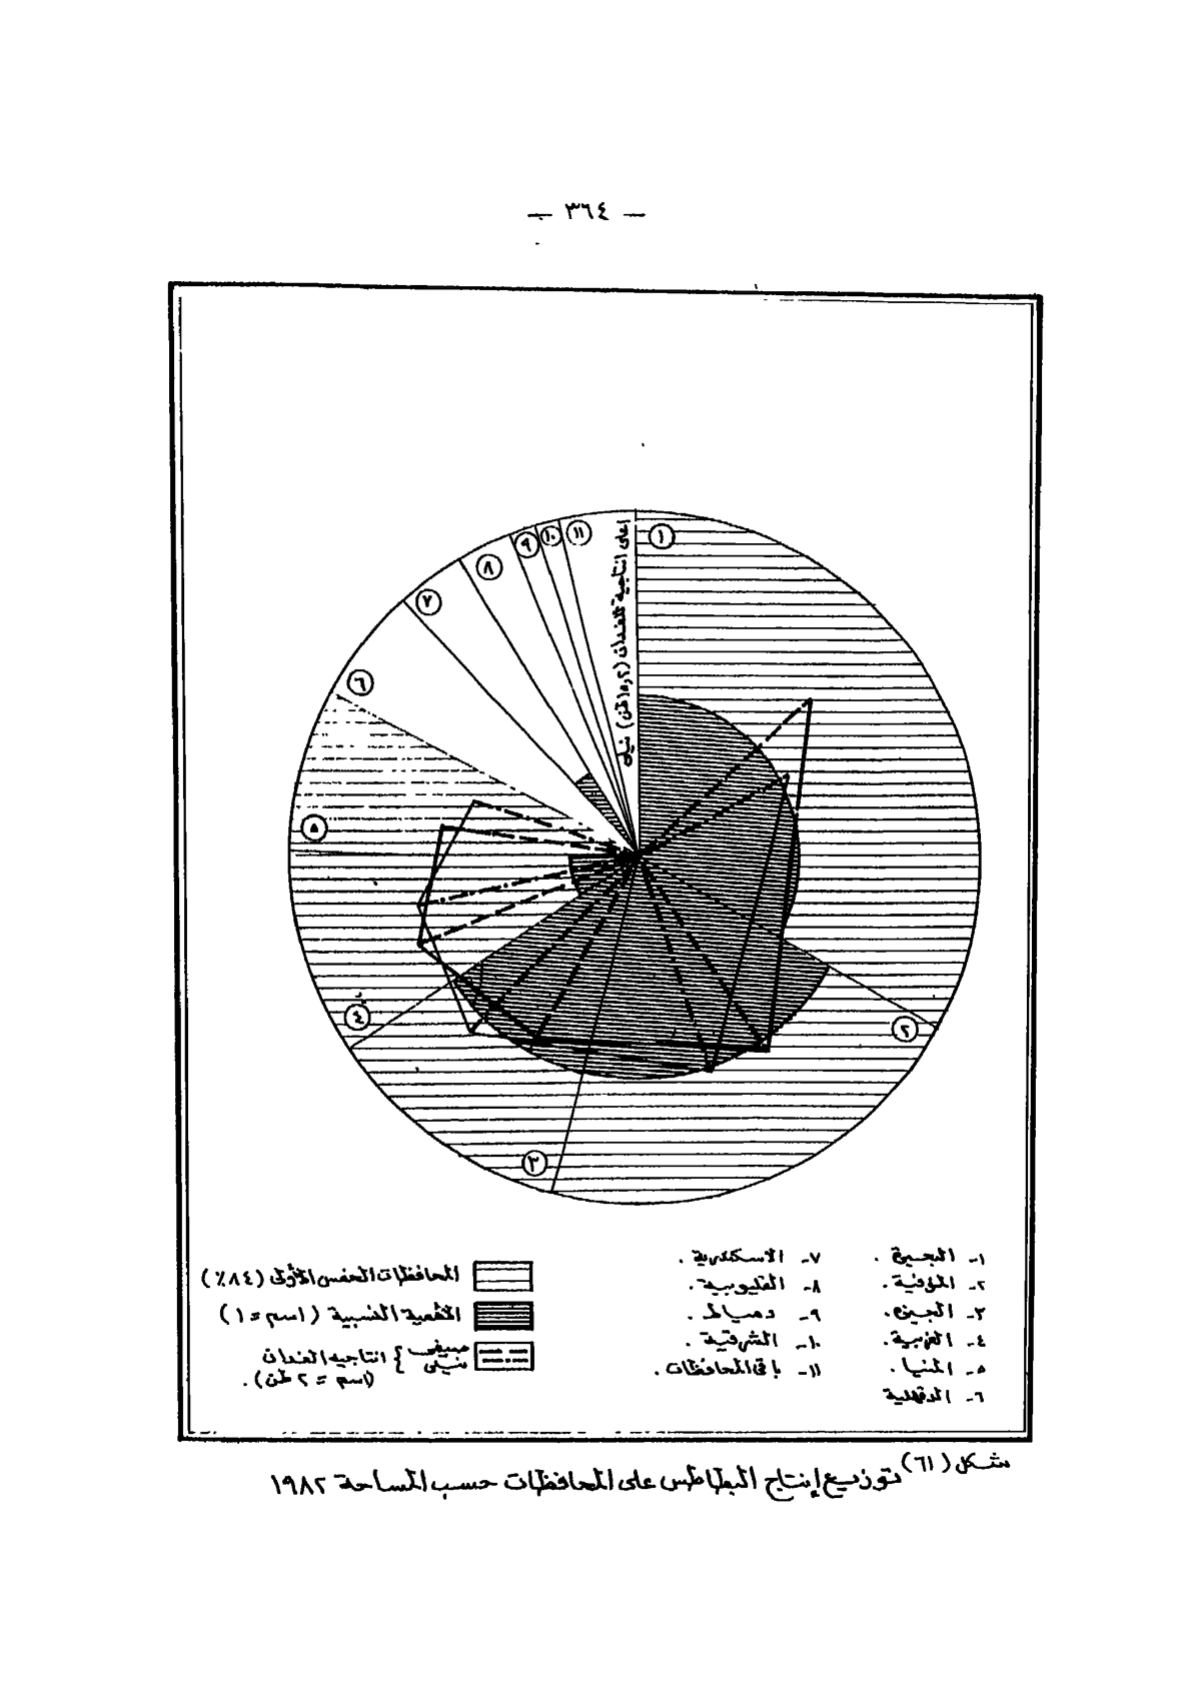 — ٣٦٤ —
١
٢
٣
٤
٥
٦
٧
٨
٩
١٠
١١
اعلى انتاجية للفدان (١٥٫٢ طن) نيلى
١- البحيرة .
٢- المنوفية .
٣- الجيزة .
٤- الغربية .
٥- المنيا .
٦- الدقهلية
٧- الاسكندرية .
٨- القليوبية .
٩- دمياط .
١٠- الشرقية .
١١- باقى المحافظات .
المحافظات الخمس الأولى (٨٤٪)
الأهمية النسبية (١سم = ١)
صيفى
نيلى
} انتاجية الفدان
(١سم = ٢ طن) .
شكل (٦١) توزيع إنتاج البطاطس على المحافظات حسب المساحة ١٩٨٢